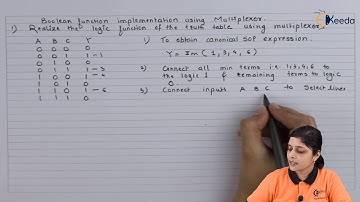 Ekeeda
Boolean function implementation using Multiplexer.
1) Realize the logic function of the truth table using multiplexer
A B C Y
0 0 0 0
0 0 1 1 – 1
0 1 0 0
0 1 1 1 – 3
1 0 0 1 – 4
1 0 1 0
1 1 0 1 – 6
1 1 1 0
1) To obtain canonical SOP expression.
Y = Σm ( 1, 3, 4, 6 )
2) Connect all min terms i.e 1,3,4,6 to
the logic 1 & remaining terms to logic
0.
3) Connect inputs A B C to select lines